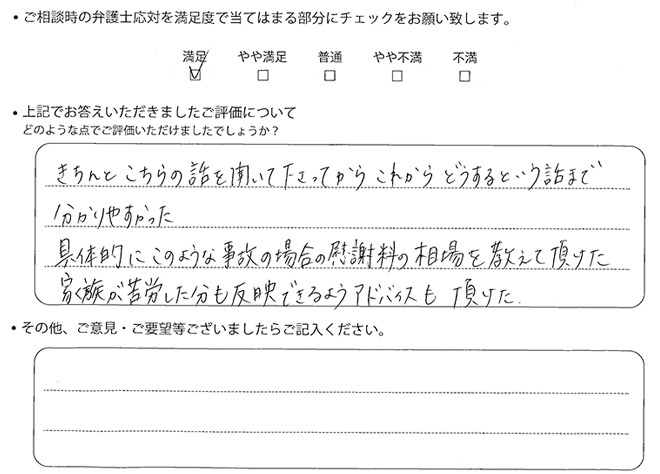 ・ご相談時の弁護士応対を満足度で当てはまる部分にチェックをお願い致します。
満足 やや満足 普通 やや不満 不満
☑ ☐ ☐ ☐ ☐
・上記でお答えいただきましたご評価について
どのような点でご評価いただけましたでしょうか？
きちんと こちらの話を聞いて下さってから これから どうするという話まで
分かりやすかった
具体的に このような 事故の場合の慰謝料の 相場を 教えて頂けた
家族が苦労した分も反映できるよう アドバイスも 頂けた.
・その他、ご意見・ご要望等ございましたらご記入ください。